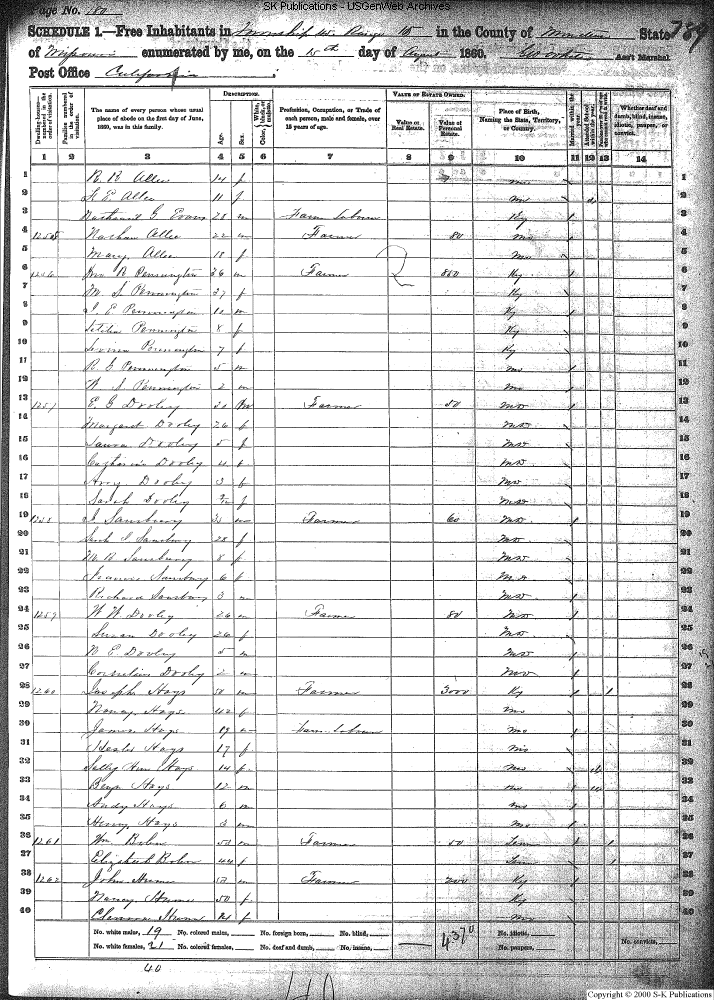 SK Publications - USGenWeb Archives
Page No. 180
SCHEDULE 1.—Free Inhabitants in Township 45 Range 15 in the County of State
of Missouri enumerated by me, on the 15th day of August 1860. Geo Ass't Marshal.
Post Office California
789
Dwelling-houses—numbered in the order of visitation.
Families numbered in the order of visitation.
The name of every person whose usual place of abode on the first day of June, 1860, was in this family.
DESCRIPTION.
Age.
Sex.
Color, {White, black, or mulatto.
Profession, Occupation, or Trade of each person, male and female, over 15 years of age.
VALUE OF ESTATE OWNED.
Value of Real Estate.
Value of Personal Estate.
Place of Birth, Naming the State, Territory, or Country.
Married within the year.
Attended School within the year.
Whether deaf and dumb, blind, insane, idiotic, pauper, or convict.
1 2 3 4 5 6 7 8 9 10 11 12 13 14
1 R. R. Allee 14 f Mo 1
2 E Allee 11 f Mo 2
3 Nathaniel G Evans 28 m Farm Laborer Ky 3
4 1255 Nathan Allee 22 m Farmer 80 Mo 4
5 Mary Allee 18 f Mo 5
6 1256 Jno R Pennington 36 m Farmer 850 Ky 6
7 M S Pennington 37 f Ky 7
8 E Pennington 10 m Ky 8
9 Letitia Pennington 8 f Ky 9
10 Pennington 7 f Ky 10
11 R G Pennington 5 m Mo 11
12 W S Pennington 2 m Mo 12
13 1257 E G Dooley m Farmer 50 Mo 13
14 Margaret Dooley 26 f Mo 14
15 Laura Dooley 5 f Mo 15
16 Catharine Dooley 4 f Mo 16
17 Amy Dooley 3 f Mo 17
18 Sarah Dooley f Mo 18
19 1258 Sansbury m Farmer 60 Mo 19
20 Sansbury 28 f Mo 20
21 M R Sansbury 8 f Mo 21
22 Francis Sansbury 6 f Mo 22
23 Richard Sansbury 3 m Mo 23
24 1259 W W Dooley 26 m Farmer 80 Mo 24
25 Susan Dooley 26 f Mo 25
26 N E Dooley 5 m Mo 26
27 Cornelius Dooley 2 m Mo 27
28 1260 Joseph Hays 50 m Farmer 3000 Ky 1 28
29 Nancy Hays 42 f Mo 29
30 James Hays 19 m Farm Laborer Mo 30
31 Hester Hays 17 f Mo 31
32 Sally Ann Hays 14 f Mo 32
33 Benj Hays 12 m Mo 33
34 Andy Hays 6 m Mo 34
35 Henry Hays 3 m Mo 35
36 1261 Wm Bolin 53 m Farmer 50 Tenn 36
37 Elizabeth Bolin 44 f Tenn 37
38 1262 John Hume 53 m Farmer 200 Ky 38
39 Nancy Hume 50 f Ky 39
40 Hume 21 f Mo 40
No. white males, 19 No. colored males, No. foreign born, No. blind, 4370 No. idiotic,
No. white females, 21 No. colored females, No. deaf and dumb, No. insane, No. paupers, No. convicts,
40
Copyright © 2000 S-K Publications